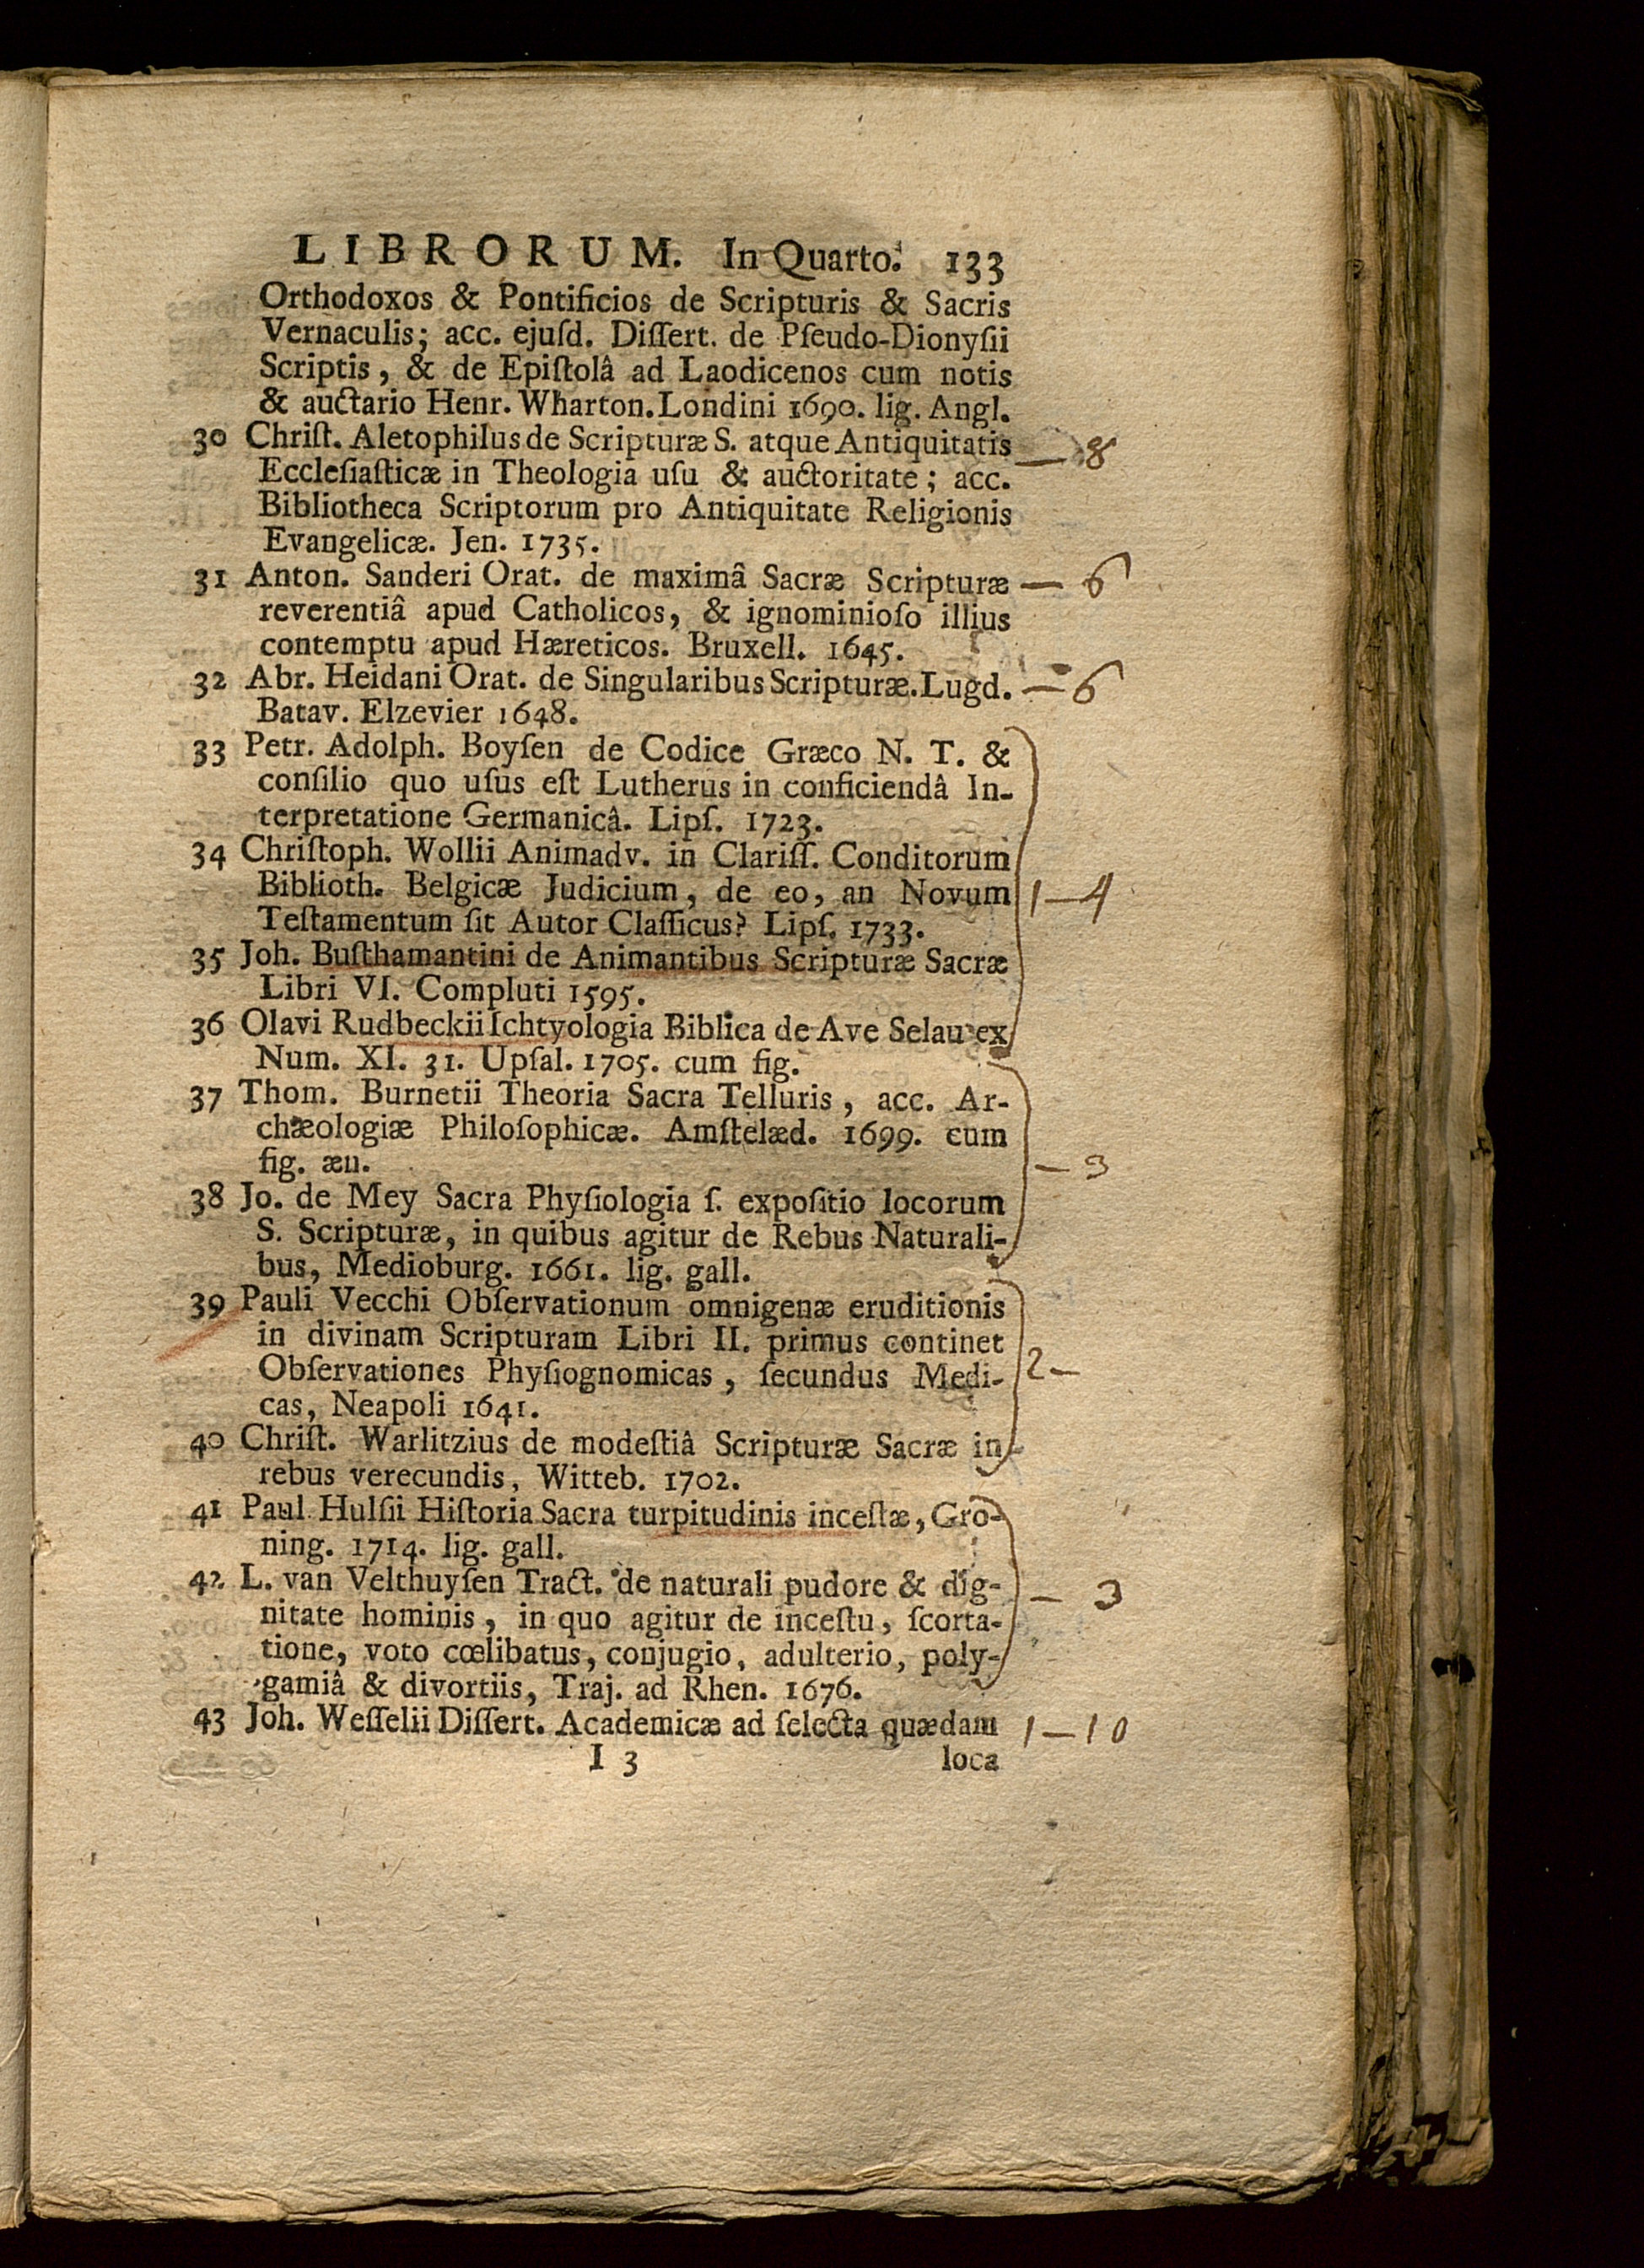 LIBRORUM. In Quarto. 133
Orthodoxos & Pontificios de Scripturis & Sacris
Vernaculis; acc. ejuſd. Diſſert. de Pſeudo-Dionyſii
Scriptis, & de Epiſtolâ ad Laodicenos cum notis
& auctario Henr. Wharton. Londini 1690. lig. Angl.
30 Chriſt. Aletophilus de Scripturæ S. atque Antiquitatis — 8
Eccleſiaſticæ in Theologia uſu & auctoritate; acc.
Bibliotheca Scriptorum pro Antiquitate Religionis
Evangelicæ. Jen. 1735.
31 Anton. Sanderi Orat. de maximâ Sacræ Scripturæ — 6
reverentiâ apud Catholicos, & ignominioſo illius
contemptu apud Hæreticos. Bruxell. 1645.
32 Abr. Heidani Orat. de Singularibus Scripturæ. Lugd. — 6
Batav. Elzevier 1648.
33 Petr. Adolph. Boyſen de Codice Græco N. T. &
conſilio quo uſus eſt Lutherus in conficiendâ In-
terpretatione Germanicâ. Lipſ. 1723.
34 Chriſtoph. Wollii Animadv. in Clariſſ. Conditorum
Biblioth. Belgicæ Judicium, de eo, an Novum 1 — 4
Teſtamentum ſit Autor Claſſicus? Lipſ. 1733.
35 Joh. Buſthamantini de Animantibus Scripturæ Sacræ
Libri VI. Compluti 1595.
36 Olavi Rudbeckii Ichtyologia Biblica de Ave Selau ex
Num. XI. 31. Upſal. 1705. cum fig.
37 Thom. Burnetii Theoria Sacra Telluris, acc. Ar-
chæologiæ Philoſophicæ. Amſtelæd. 1699. cum
fig. æn. — 3
38 Jo. de Mey Sacra Phyſiologia ſ. expoſitio locorum
S. Scripturæ, in quibus agitur de Rebus Naturali-
bus, Medioburg. 1661. lig. gall.
39 Pauli Vecchi Obſervationum omnigenæ eruditionis
in divinam Scripturam Libri II. primus continet
Obſervationes Phyſiognomicas, ſecundus Medi- 2 —
cas, Neapoli 1641.
40 Chriſt. Warlitzius de modeſtiâ Scripturæ Sacræ in
rebus verecundis, Witteb. 1702.
41 Paul Hulſii Hiſtoria Sacra turpitudinis inceſtæ, Gro-
ning. 1714. lig. gall.
42 L. van Velthuyſen Tract. de naturali pudore & dig- — 3
nitate hominis, in quo agitur de inceſtu, ſcorta-
tione, voto cœlibatus, conjugio, adulterio, poly-
gamiâ & divortiis, Traj. ad Rhen. 1676.
43 Joh. Weſſelii Diſſert. Academicæ ad ſelecta quædam 1 — 10
I 3 loca